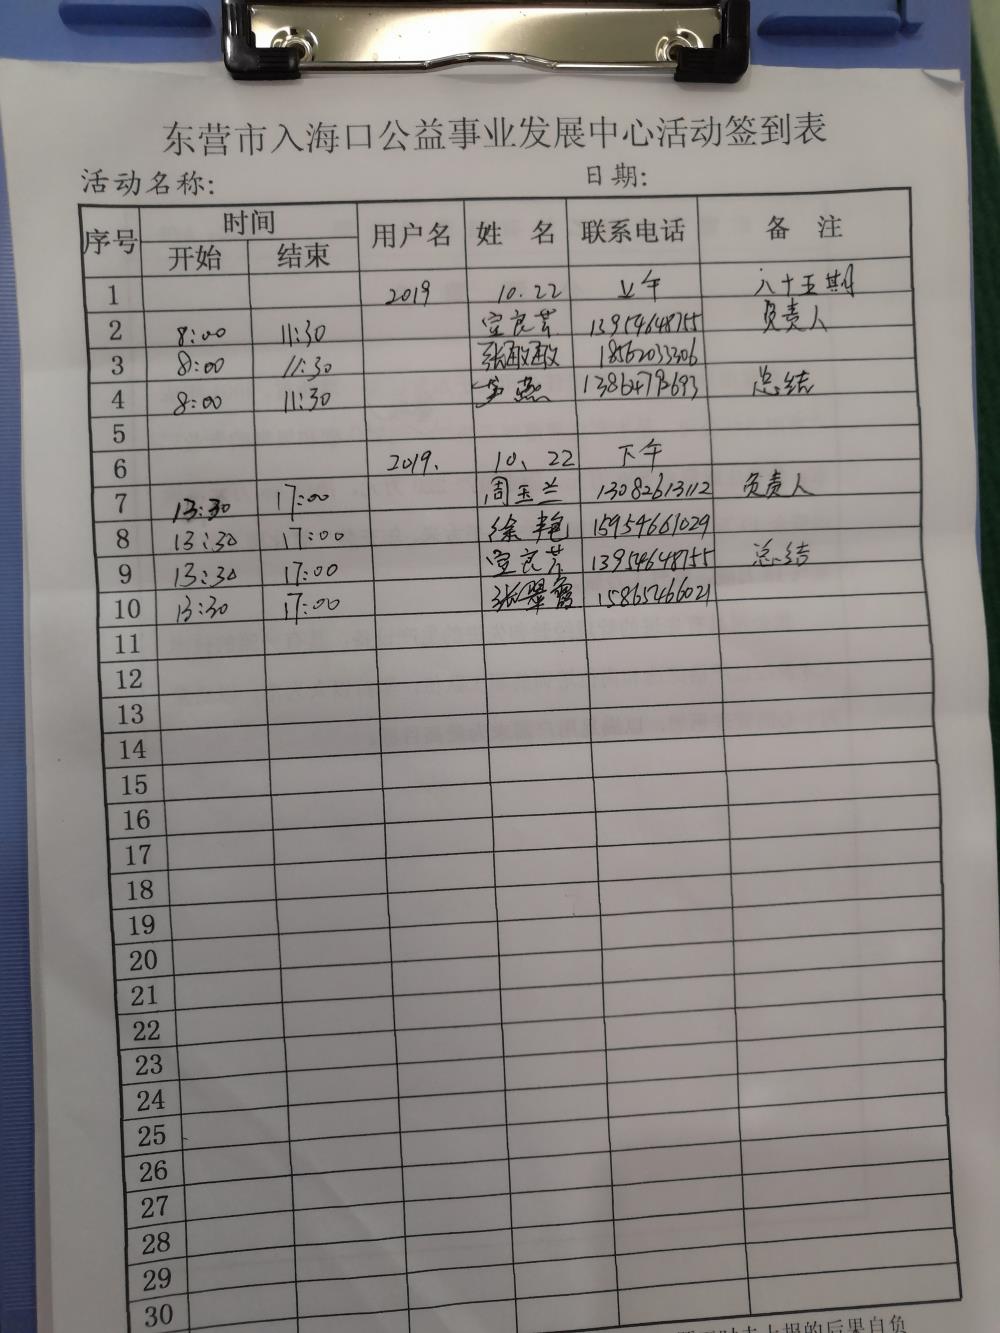 东营市入海口公益事业发展中心活动签到表
活动名称: 日期:
序号 时间 用户名 姓 名 联系电话 备 注
开始 结束
1 2019 10.22 上午 八十五期
2 8:00 11:30 宣良芳 13954648755 负责人
3 8:00 11:30 张敏敏 18562033306
4 8:00 11:30 燕 总结
5
6 2019. 10、22 下午
7 13:30 17:00 周玉兰 13082613112 负责人
8 13:30 17:00 徐艳 15954661029
9 13:30 17:00 宣良芳 13954648755 总结
10 13:30 17:00 张翠霞 15865466021
11
12
13
14
15
16
17
18
19
20
21
22
23
24
25
26
27
28
29
30
上报的后果自负